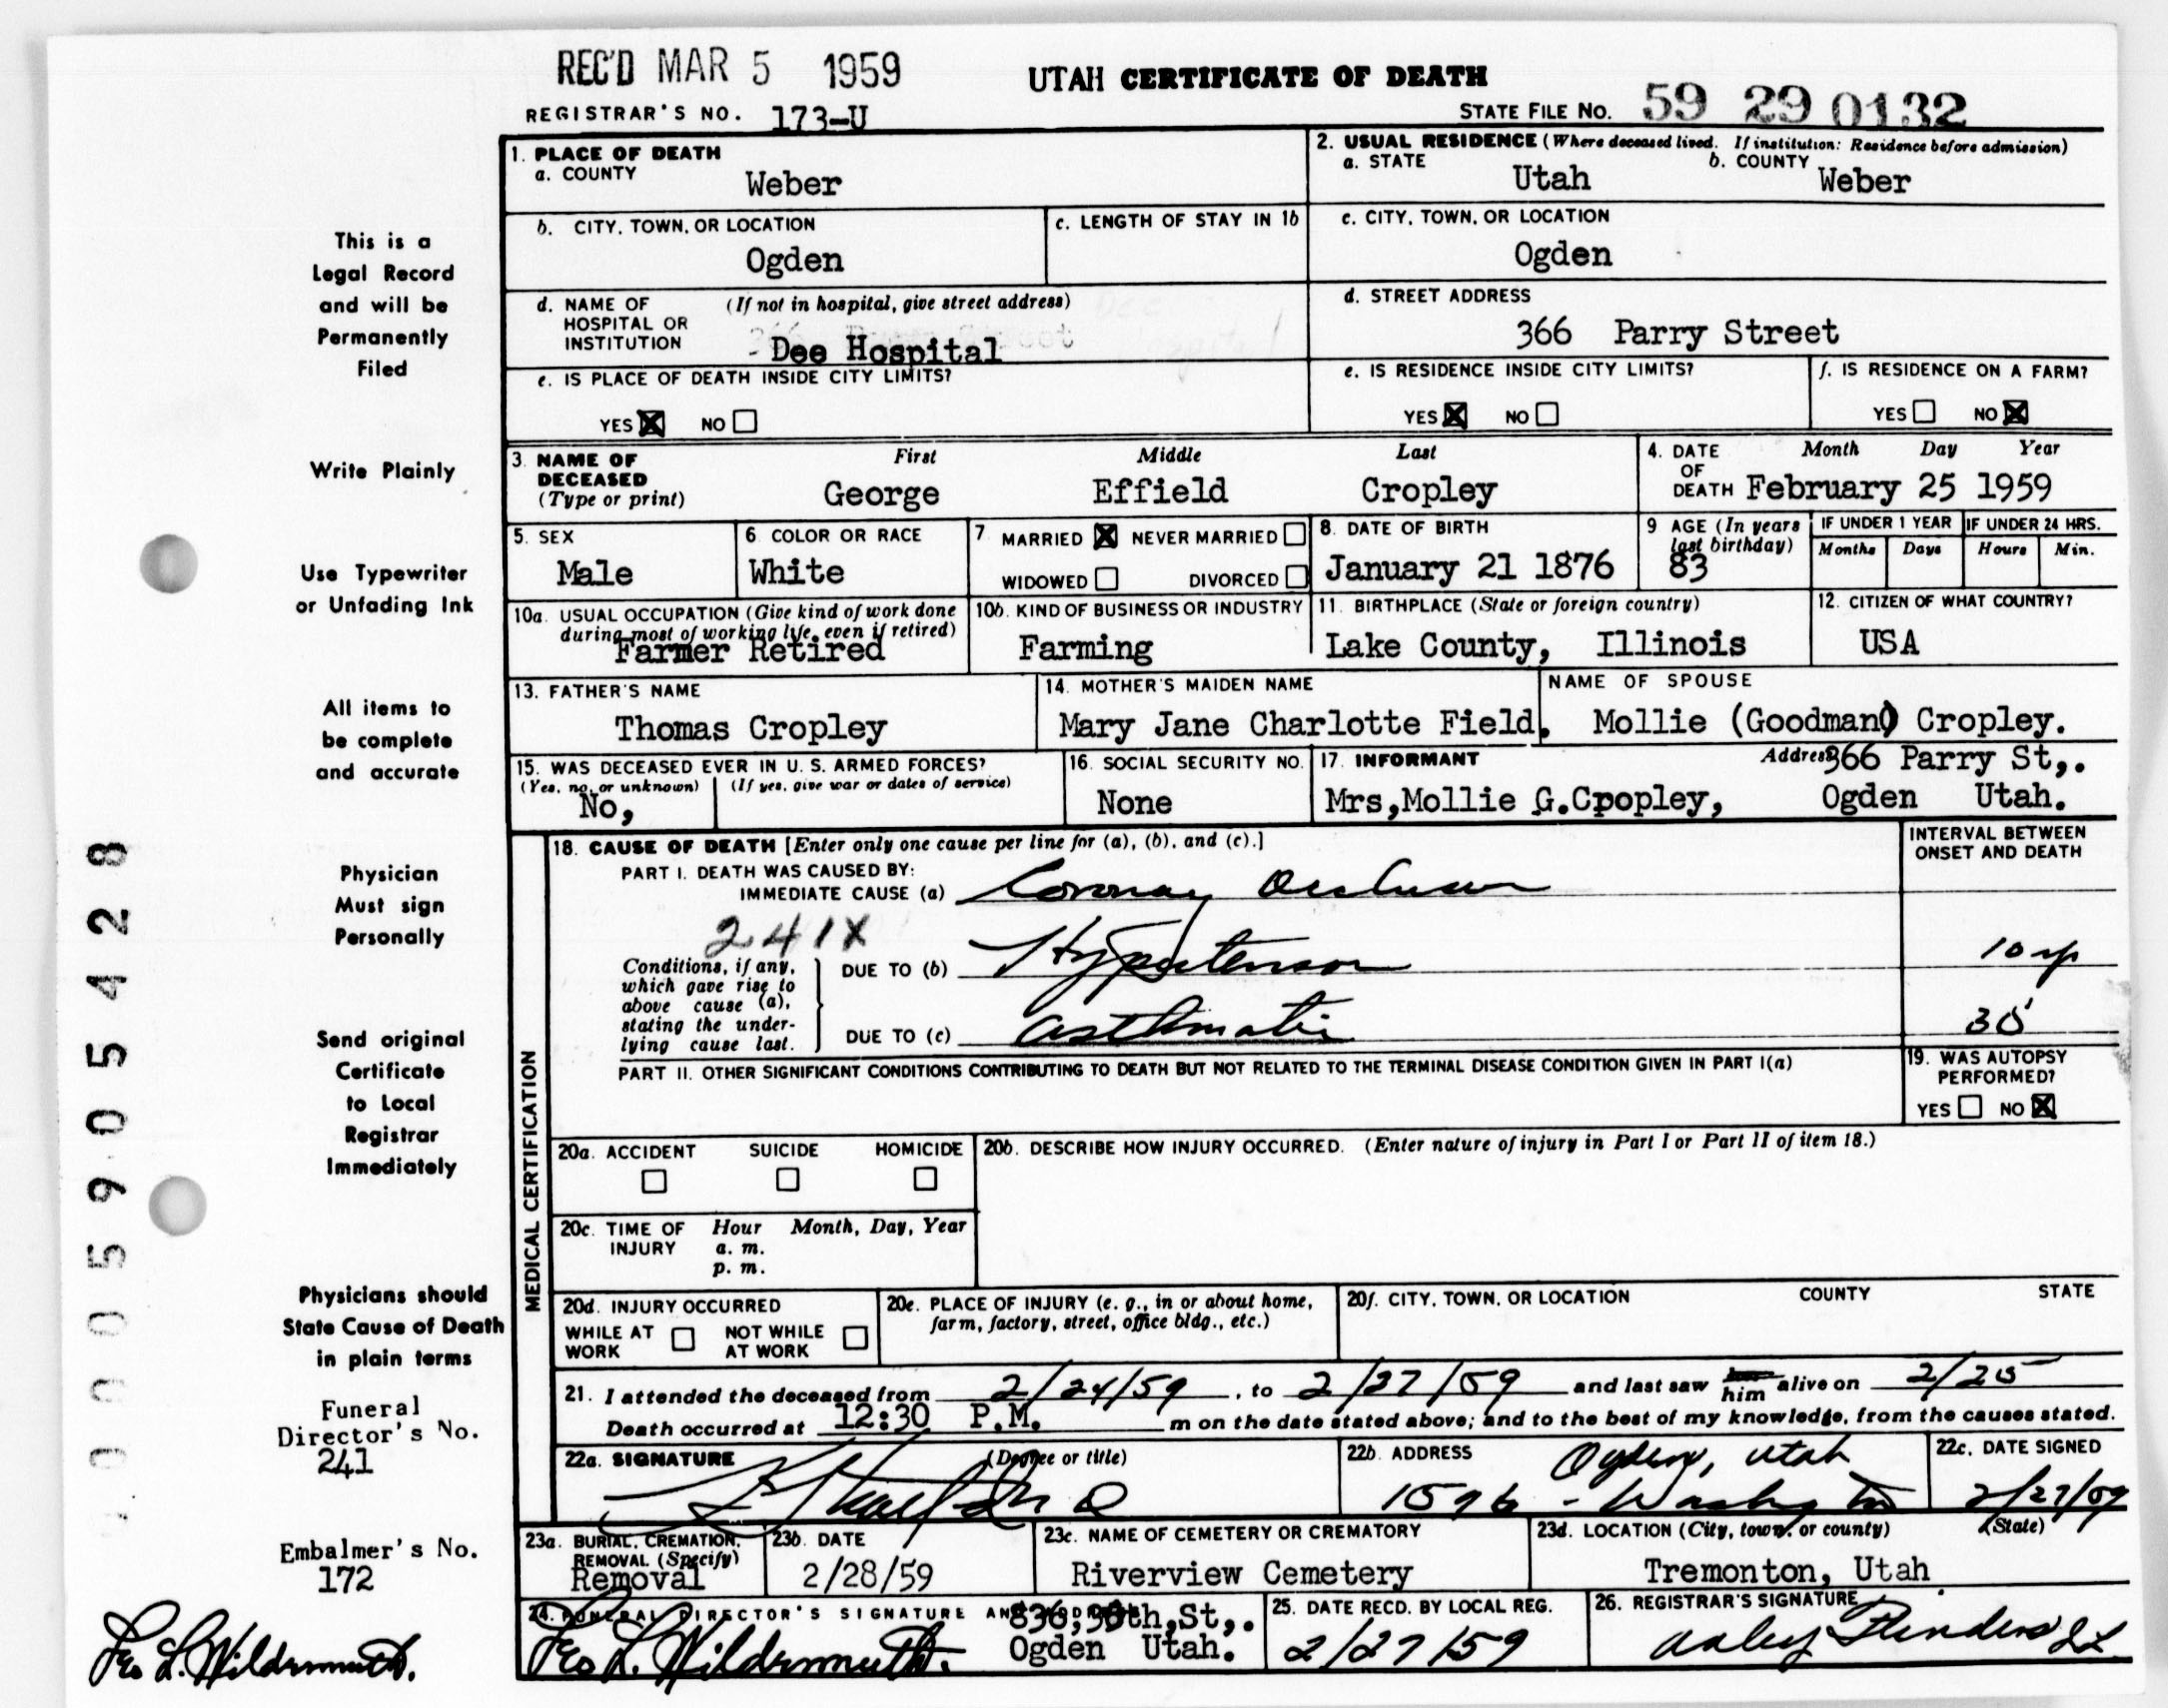 REC'D MAR 5 1959
UTAH CERTIFICATE OF DEATH
REGISTRAR'S NO. 173-U
STATE FILE NO. 59 29 0132
This is a
Legal Record
and will be
Permanently
Filed
Write Plainly
Use Typewriter
or Unfading Ink
All items to
be complete
and accurate
Physician
Must sign
Personally
Send original
Certificate
to Local
Registrar
Immediately
Physicians should
State Cause of Death
in plain terms
Funeral
Director's No.
241
Embalmer's No.
172
Geo L. Wildermuth.
000590505428
1. PLACE OF DEATH
a. COUNTY
Weber
2. USUAL RESIDENCE (Where deceased lived. If institution: Residence before admission)
a. STATE Utah b. COUNTY Weber
b. CITY, TOWN, OR LOCATION
Ogden
c. LENGTH OF STAY IN 1b
c. CITY, TOWN, OR LOCATION
Ogden
d. NAME OF HOSPITAL OR INSTITUTION (If not in hospital, give street address)
Dee Hospital
d. STREET ADDRESS
366 Parry Street
e. IS PLACE OF DEATH INSIDE CITY LIMITS?
YES X NO
e. IS RESIDENCE INSIDE CITY LIMITS?
YES X NO
f. IS RESIDENCE ON A FARM?
YES NO X
3. NAME OF DECEASED (Type or print)
First Middle Last
George Effield Cropley
4. DATE OF DEATH Month Day Year
February 25 1959
5. SEX
Male
6. COLOR OR RACE
White
7. MARRIED X NEVER MARRIED
WIDOWED DIVORCED
8. DATE OF BIRTH
January 21 1876
9 AGE (In years last birthday)
83
IF UNDER 1 YEAR
Months Days
IF UNDER 24 HRS.
Hours Min.
10a. USUAL OCCUPATION (Give kind of work done during most of working life, even if retired)
Farmer Retired
10b. KIND OF BUSINESS OR INDUSTRY
Farming
11. BIRTHPLACE (State or foreign country)
Lake County, Illinois
12. CITIZEN OF WHAT COUNTRY?
USA
13. FATHER'S NAME
Thomas Cropley
14. MOTHER'S MAIDEN NAME
Mary Jane Charlotte Field,
NAME OF SPOUSE
Mollie (Goodman) Cropley.
15. WAS DECEASED EVER IN U. S. ARMED FORCES?
(Yes, no, or unknown) (If yes, give war or dates of service)
No,
16. SOCIAL SECURITY NO.
None
17. INFORMANT Address 366 Parry St,.
Mrs,Mollie G.Cpopley, Ogden Utah.
MEDICAL CERTIFICATION
18. CAUSE OF DEATH [Enter only one cause per line for (a), (b), and (c).]
INTERVAL BETWEEN ONSET AND DEATH
PART I. DEATH WAS CAUSED BY:
IMMEDIATE CAUSE (a) Coronary Occlusion
241X
Conditions, if any, which gave rise to above cause (a), stating the underlying cause last.
DUE TO (b) Hypertension 10 yr
DUE TO (c) asthmatic
PART II. OTHER SIGNIFICANT CONDITIONS CONTRIBUTING TO DEATH BUT NOT RELATED TO THE TERMINAL DISEASE CONDITION GIVEN IN PART I(a)
19. WAS AUTOPSY PERFORMED?
YES NO X
20a. ACCIDENT SUICIDE HOMICIDE
20b. DESCRIBE HOW INJURY OCCURRED. (Enter nature of injury in Part I or Part II of item 18.)
20c. TIME OF INJURY Hour Month, Day, Year
a. m.
p. m.
20d. INJURY OCCURRED
WHILE AT WORK NOT WHILE AT WORK
20e. PLACE OF INJURY (e. g., in or about home, farm, factory, street, office bldg., etc.)
20f. CITY, TOWN, OR LOCATION COUNTY STATE
21. I attended the deceased from 2/24/59, to 2/27/59 and last saw him alive on 2/25
Death occurred at 12:30 P.M. m on the date stated above; and to the best of my knowledge, from the causes stated.
22a. SIGNATURE (Degree or title)
22b. ADDRESS Ogden, Utah
1596 - Washington
22c. DATE SIGNED
2/27/59
23a. BURIAL, CREMATION, REMOVAL (Specify)
Removal
23b. DATE
2/28/59
23c. NAME OF CEMETERY OR CREMATORY
Riverview Cemetery
23d. LOCATION (City, town, or county) (State)
Tremonton, Utah
24. FUNERAL DIRECTOR'S SIGNATURE AND ADDRESS
Geo L. Wildermuth.
Ogden Utah.
25. DATE RECD. BY LOCAL REG.
2/27/59
26. REGISTRAR'S SIGNATURE